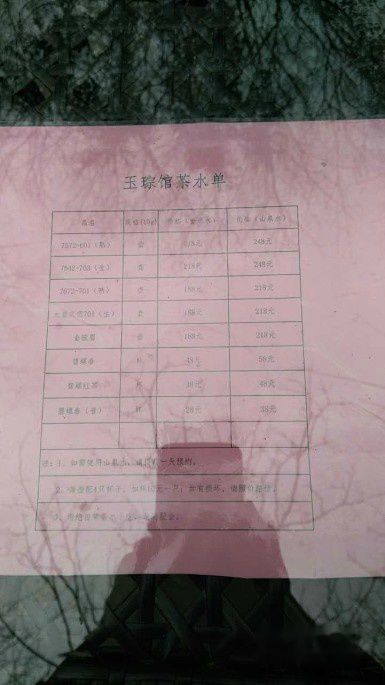 玉琮馆茶水单
品名 规格(10g) 价格（ 水） 价格（山泉水）
7572-601（熟） 壶 218元 248元
7542-703（生） 壶 218元 248元
7672-701（熟） 壶 188元 218元
大益 701（生） 壶 188元 218元
金骏眉 壶 188元 218元
碧螺春 杯 48元 58元
碧螺红茶 杯 38元 48元
碧螺春（普） 杯 28元 38元
注：1、如需使用山泉水，请提前一天预约。
2、 壶配4只杯子，加杯10元一只；如有损坏，请照价赔偿。
3、谢绝自带茶